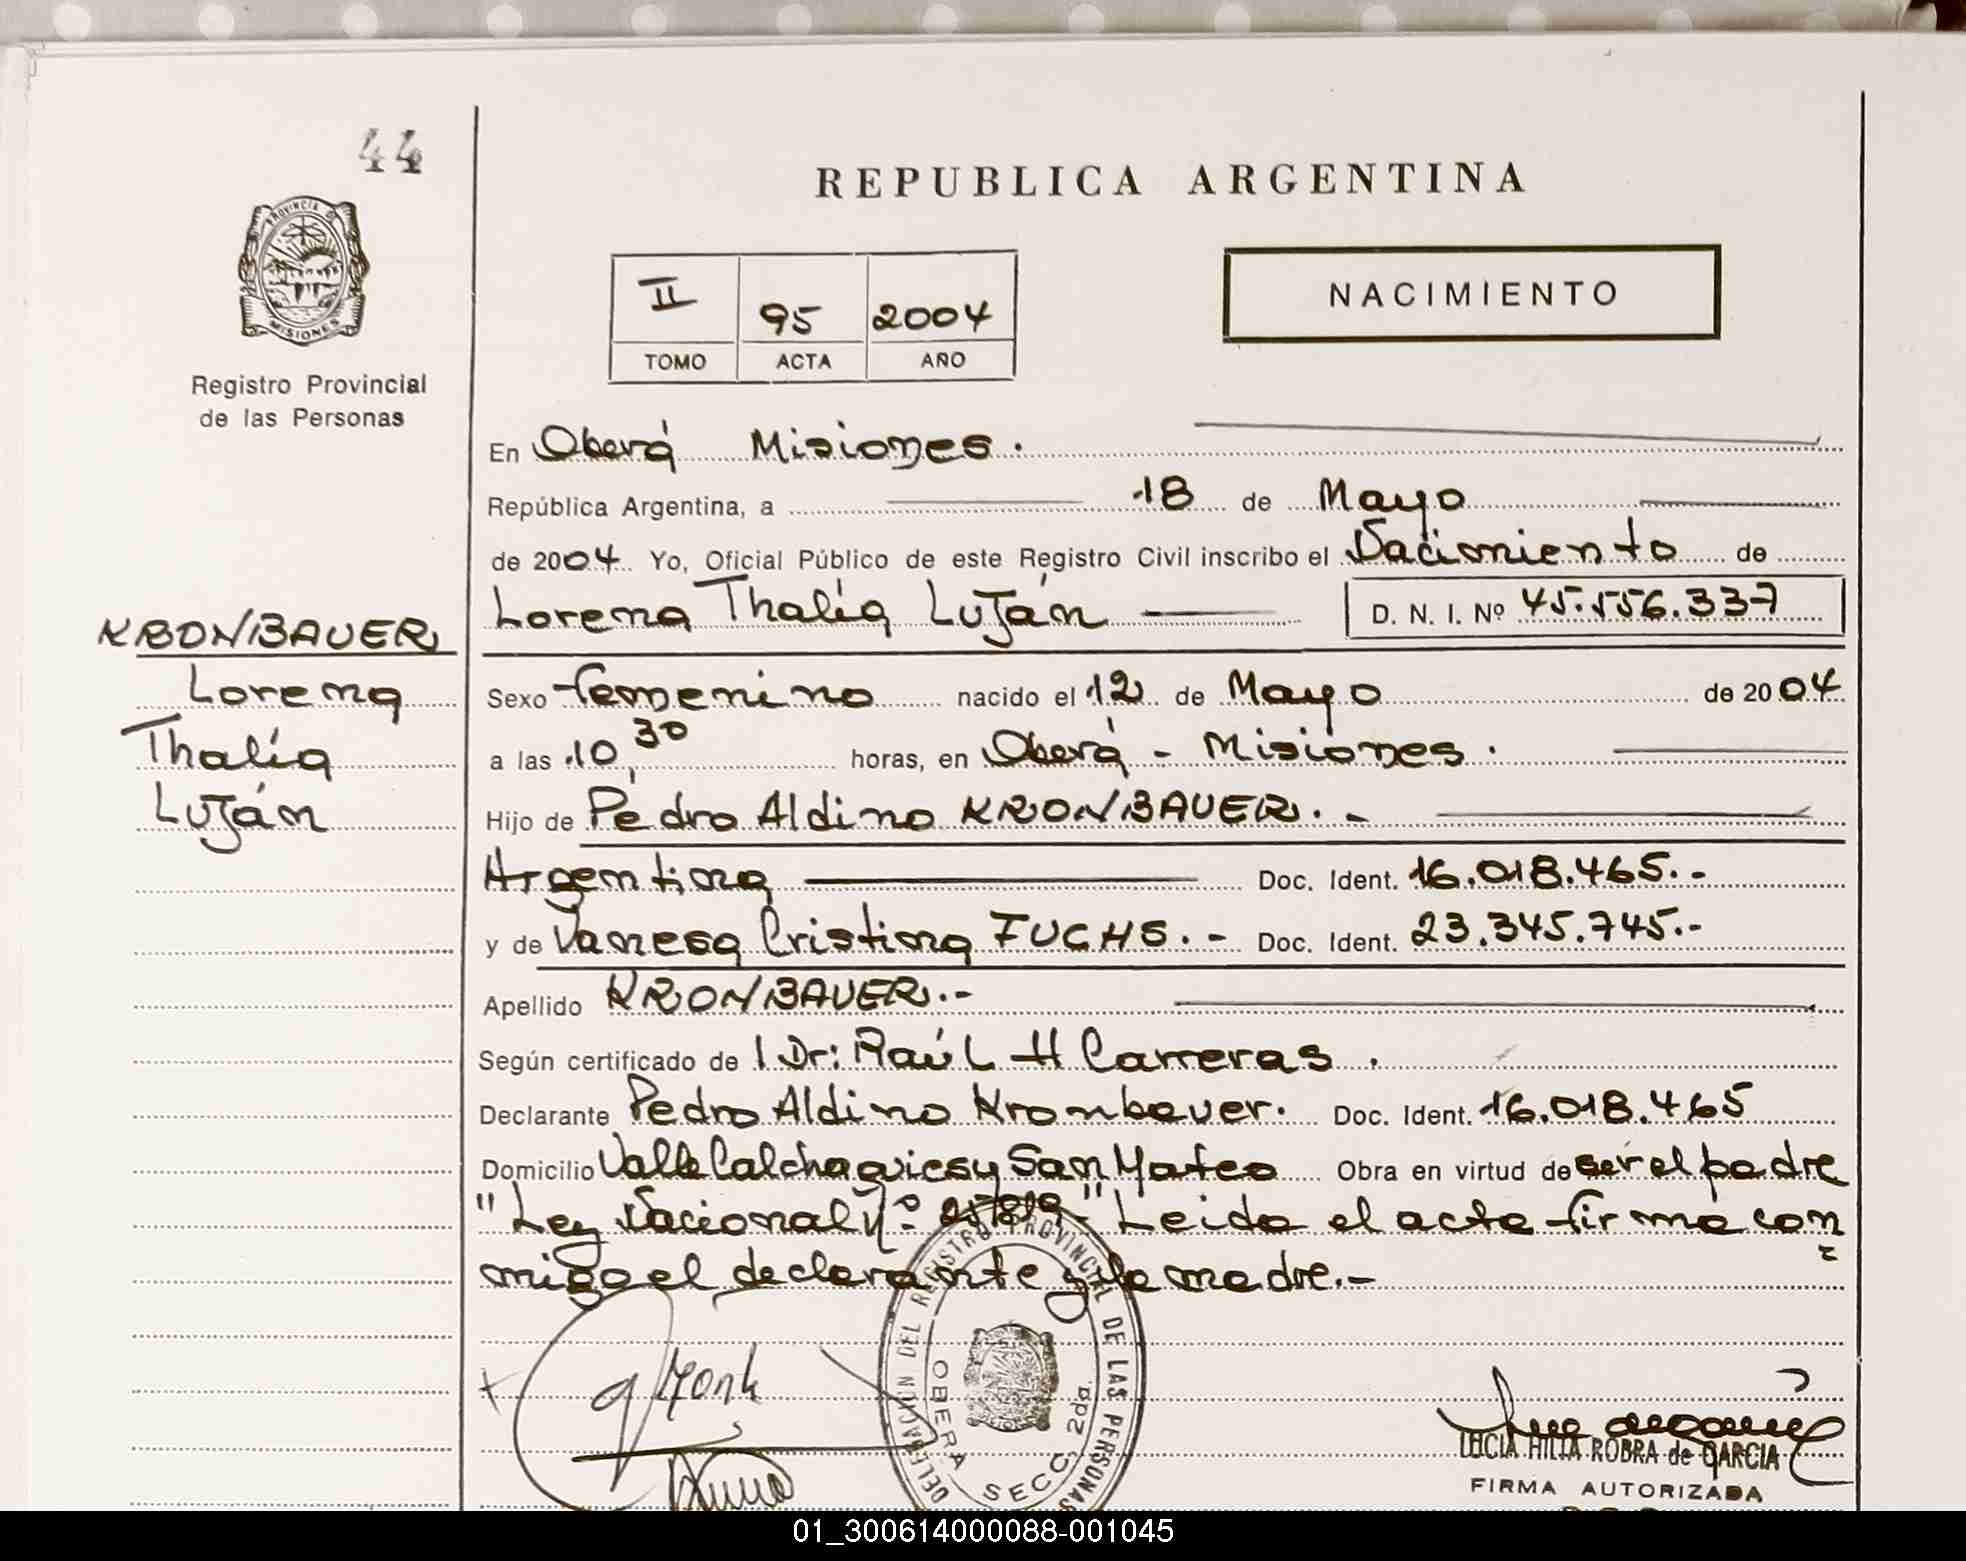 44
REPUBLICA ARGENTINA
PROVINCIA DE
MISIONES
Registro Provincial
de las Personas
II 95 2004
TOMO ACTA AÑO
NACIMIENTO
En Oberá Misiones.
República Argentina, a 18 de Mayo
de 2004. Yo, Oficial Público de este Registro Civil inscribo el Nacimiento de
Lorena Thalía Luján D. N. I. Nº 45.556.337
KRONBAUER
Lorena
Thalía
Luján
Sexo femenino nacido el 12 de Mayo de 2004
a las 10,30 horas, en Oberá - Misiones.
Hijo de Pedro Aldino KRONBAUER.-
Argentina Doc. Ident. 16.018.465.-
y de Vanesa Cristina FUCHS.- Doc. Ident. 23.345.745.-
Apellido KRONBAUER.-
Según certificado de Dr: Raúl H Carreras.
Declarante Pedro Aldino Kronbauer. Doc. Ident. 16.018.465
Domicilio Valle Calchaquies y San Mateo Obra en virtud de ser el padre
"Ley Nacional Nº " Leida el acta firma con=
migo el declarante y la madre.-
DELEGACION DEL REGISTRO PROVINCIAL DE LAS PERSONAS
OBERA SECC. 2da.
HILIA ROBRA de GARCIA
FIRMA AUTORIZADA
01_300614000088-001045